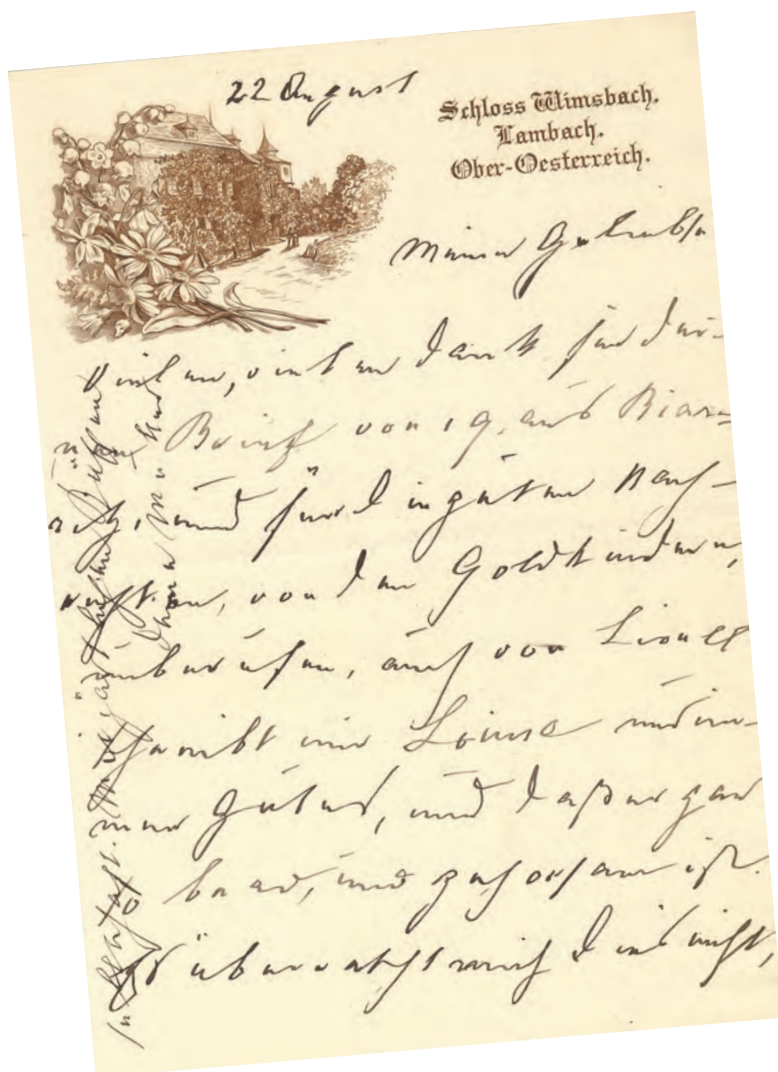 22 August
Schloss Wimsbach.
Lambach.
Ober-Oesterreich.
Meine Geliebte
Vielen, vielen Dank für dei-
nen Brief von 19. aus Biar-
ritz, und für die guten Nach-
richten, von den Goldkindern,
unberufen, auch von Lionel
schreibt mir Louise und im-
mer Gutes, und daß er gar
so brav, und gehorsam ist.
Es überrascht mich dies nicht,
Küssen
Deine